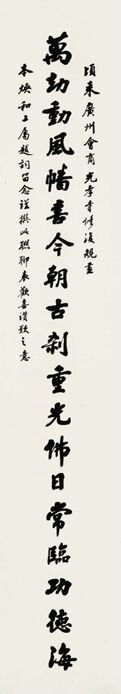 頃來廣州會商光孝寺修復規畫
萬劫動風幡喜今朝古刹重光佛日常臨功德海
本煥和上屬題詞留念謹撰此聯聊表歡喜讚歎之意